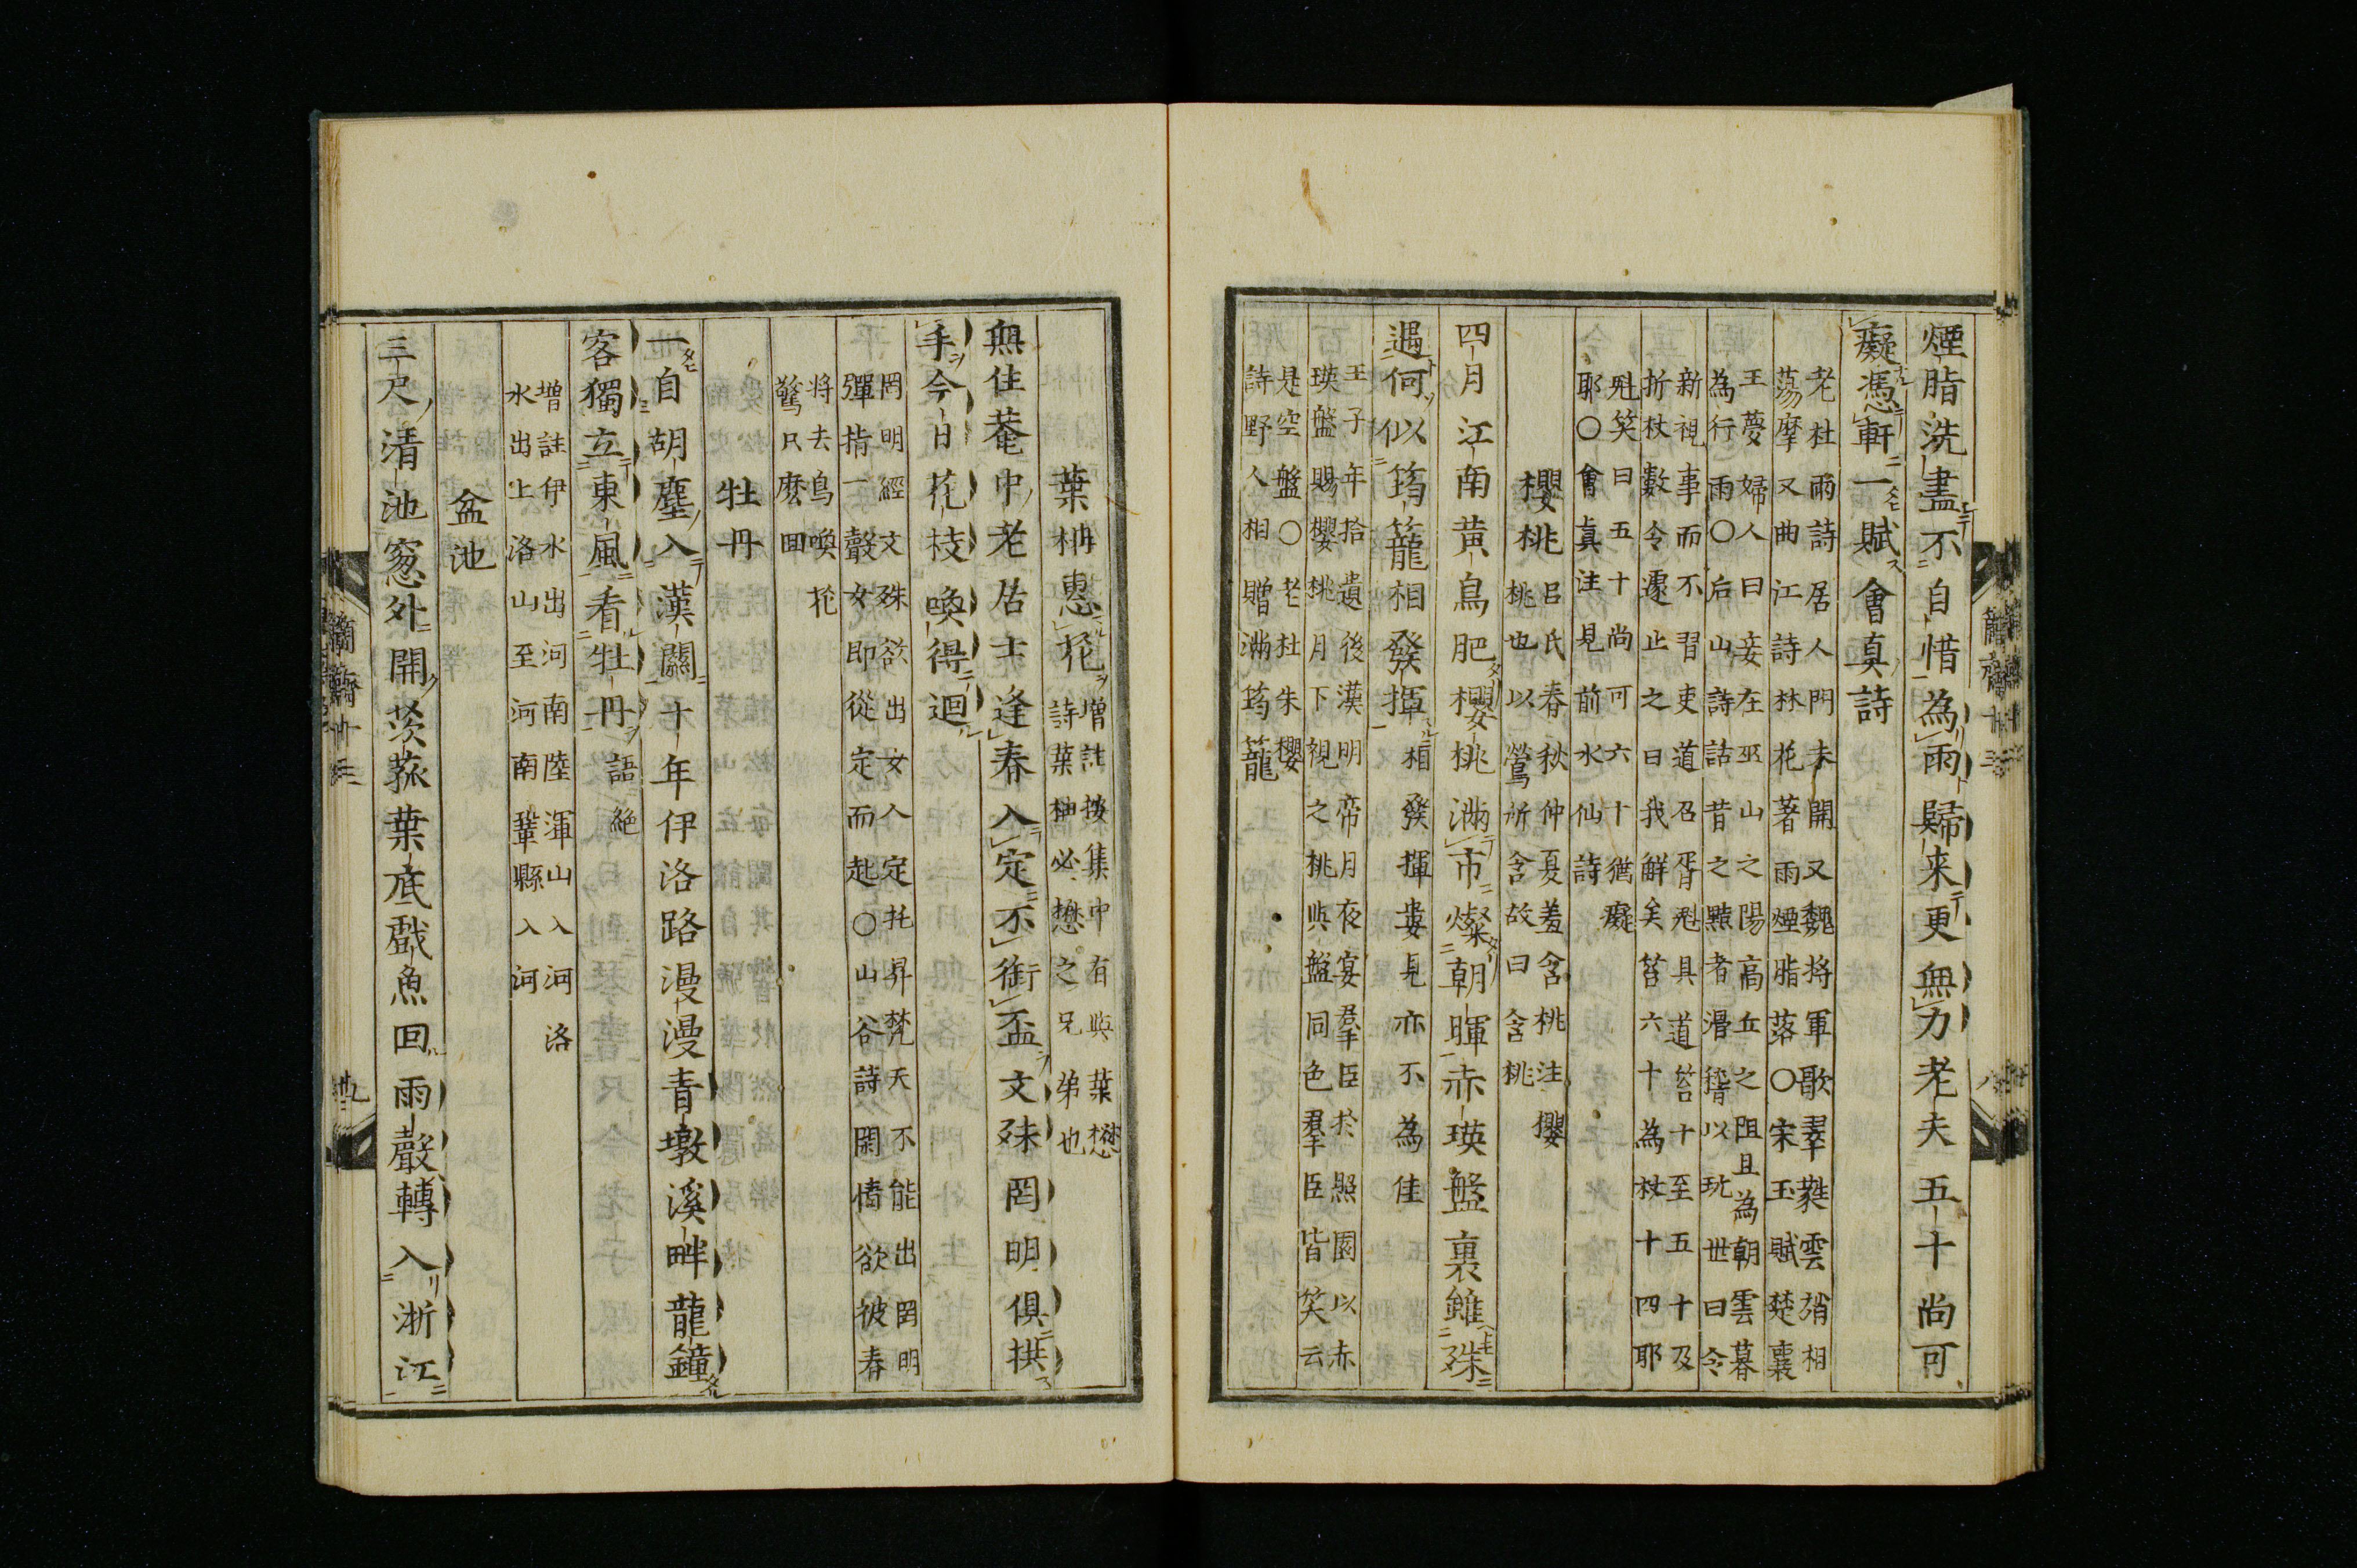 煙脂洗盡不自惜為雨歸来更無力老夫五十尚可
癡憑軒一賦會真詩
老杜雨詩居人門未開又魏将軍歌羣䕺雲矟相
蕩摩又曲江詩林花著雨煙脂落〇宋玉賦楚襄
王夢婦人曰妾在巫山之陽高丘之阻且為朝雲暮
為行雨〇后山詩話昔之黠者滑稽以玩世曰令
新視事而不習吏道召胥魁具道笞十至五十及
折杖數令遽止之曰我解矣笞六十為杖十四耶
魁笑曰五十尚可六十猶癡
耶〇會真注見前水仙詩
櫻桃
吕氏春秋仲夏羞含桃注櫻
桃也以鶯所含故曰含桃
四月江南黄鳥肥櫻桃滿市燦朝暉赤瑛盤裏雖殊
遇何似筠籠相發揮
相發揮婁見亦不為佳
王子年拾遺後漢明帝月夜宴羣臣於照園以赤
瑛盤賜櫻桃月下視之桃與盤同色羣臣皆笑云
是空盤〇老杜朱櫻
詩野人相贈滿筠籠
葉柟惠花
增註按集中有與葉懋
詩葉柚必懋之兄弟也
無住菴中老居士逢春入定不銜盃文殊罔明俱拱
手今日花枝喚得迴
罔明經文殊欲出女人定托昇梵天不能出罔明
彈指一聲女即從定而起〇山谷詩閑情欲被春
将去鳥喚花
驚只麽回
牡丹
一自胡塵入漢關十年伊洛路漫漫青墩溪畔龍鐘
客獨立東風看牡丹
語絶
增註伊水出河南陸渾山入河洛
水出上洛山至河南鞏縣入河
盆池
三尺清池窓外開茨菰葉底戲魚回雨聲轉入浙江
簡齋十三